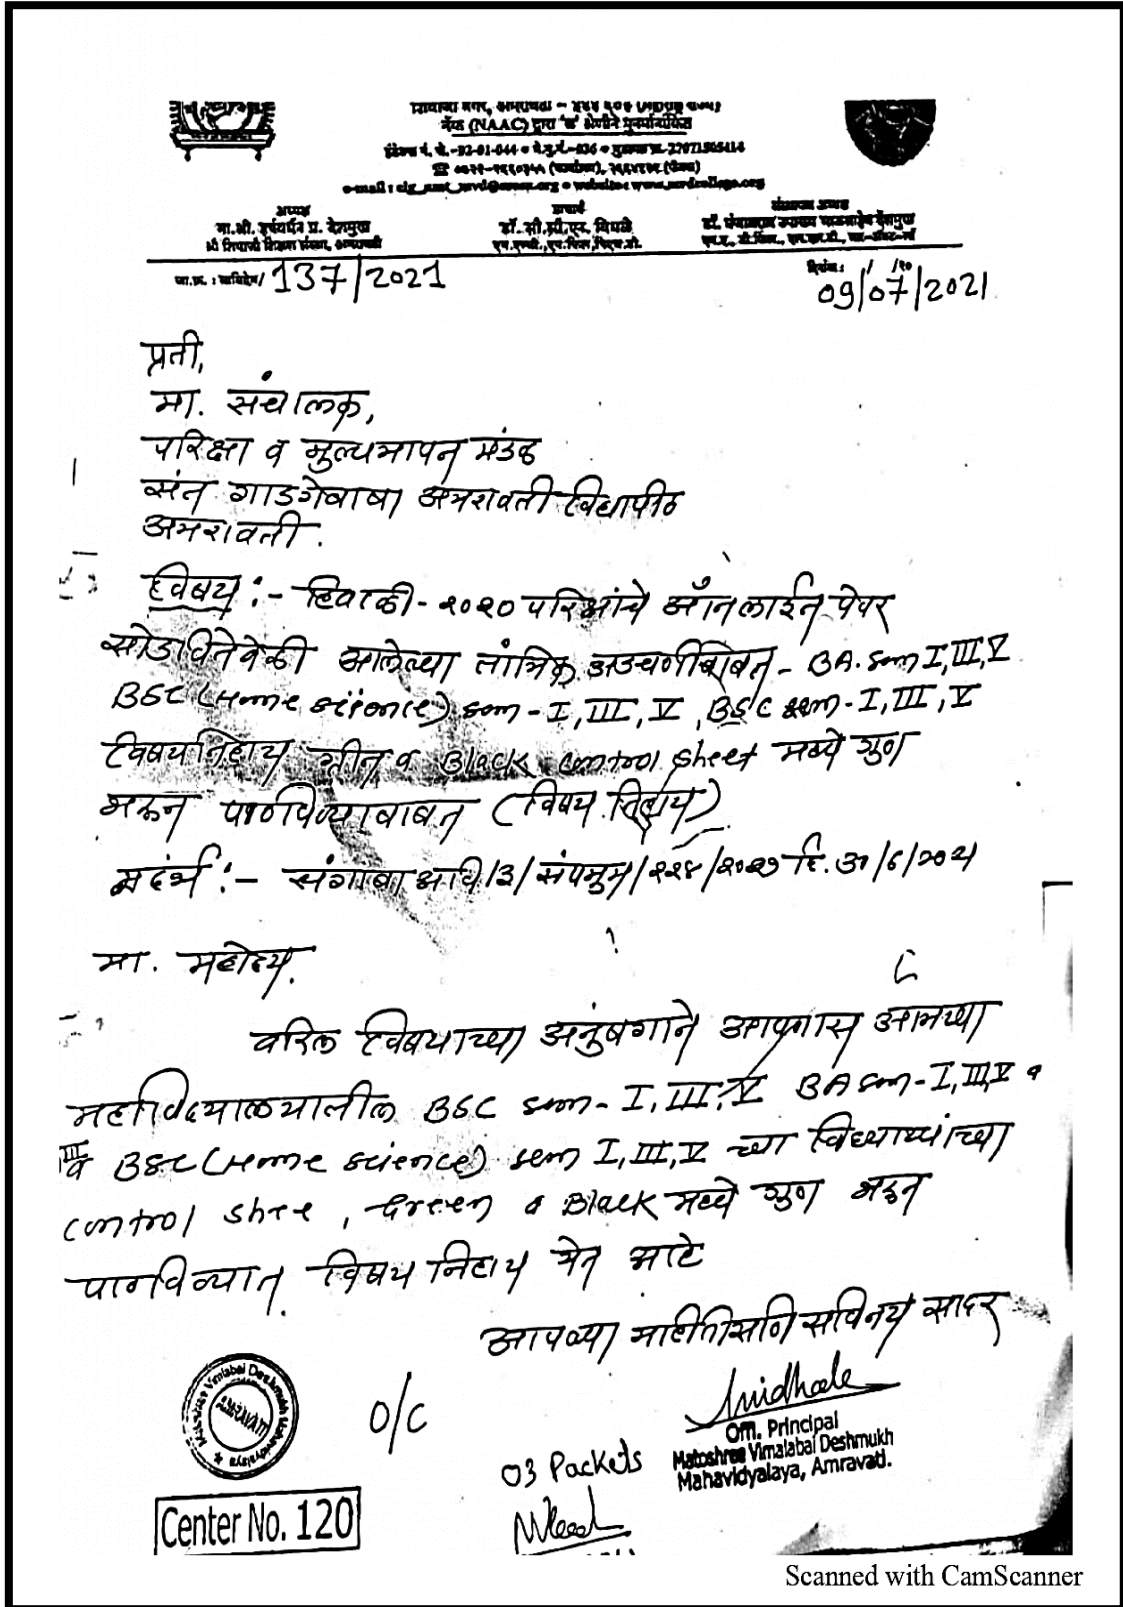 शिवाजी नगर, अमरावती – ४४४ ६०३ (महाराष्ट्र राज्य)
नॅक (NAAC) द्वारा 'ब' श्रेणीने पुनर्मानांकित
अध्यक्ष
प्राचार्य
संस्थापक अध्यक्ष
मा.श्री. हर्षवर्धन प्र. देशमुख
श्री शिवाजी शिक्षण संस्था, अमरावती
जा.क्र. : मविदेम/ 137/2021
दिनांक : / /२०
09/07/2021
प्रती,
मा. संचालक,
परिक्षा व मुल्यमापन मंडळ
संत गाडगेबाबा अमरावती विद्यापीठ
अमरावती.
विषय :- हिवाळी - २०२० परिक्षांचे ऑनलाईन पेपर
सोडवितेवेळी आलेल्या तांत्रिक अडचणींबाबत - BA. sem I, III, V
BSC (Home science) sem - I, III, V, BSC sem - I, III, V
विषयनिहाय ग्रीन व Black control sheet मध्ये गुण
भरून पाठविण्याबाबत (विषय निहाय)
संदर्भ :- संगाबाअवि/3/संपमुम/२२४/२०२१ दि.
मा. महोदय.
वरिल विषयाच्या अनुषंगाने आपणास आमच्या
महाविद्यालयातील BSC sem - I, III, V BA sem - I, III, V व
व BSC (Home science) sem I, III, V च्या विद्यार्थ्यांच्या
control shee, Green व Black मध्ये गुण भरून
पाठविण्यात विषय निहाय येत आहे
आपल्या माहितीसाठी सविनय सादर
Matoshree Vimlabai Deshmukh Mahavidyalaya
AMRAVATI
O/C
Offi. Principal
Matoshree Vimalabai Deshmukh
Mahavidyalaya, Amravati.
03 Packets
Center No. 120
Scanned with CamScanner